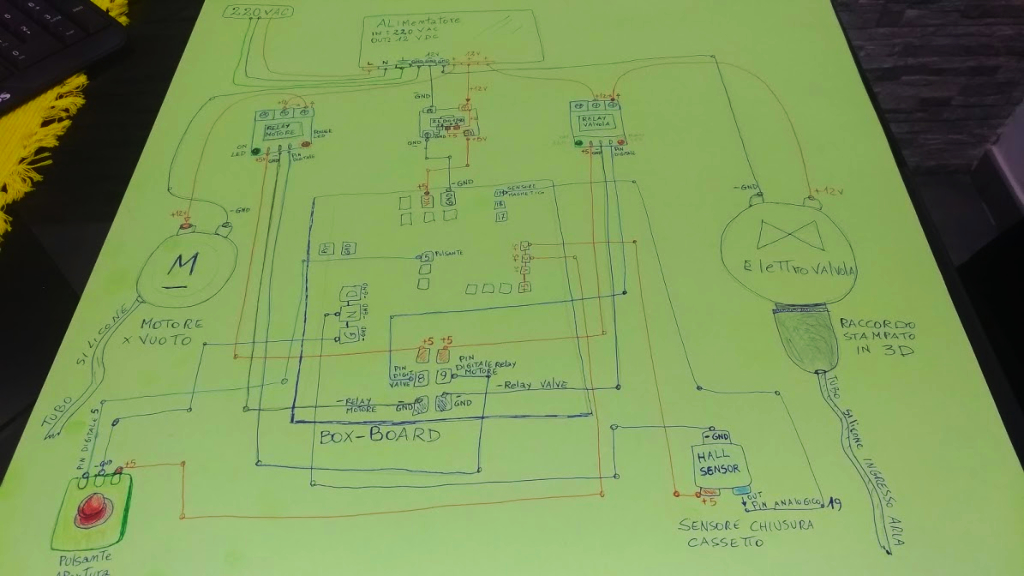 220 VAC
ALimentatore
IN: 220 VAC
OUT: 12 VDC
L N
12V
12V
GND
+12V
RELAY
MOTORE
POWER
LED
ON
LED
+5V
GND
PIN
DIGITALE
+5V
GND
+12V
RELAY
VALVOLA
PIN
DIGITALE
GND
+5
-GND
SENSORE
MAGNETICO
18
17
+12V
-GND
M
MOTORE
x VUOTO
TUBO SILICONE
-GND
+12V
ElettroVALVOLA
RACCORDO
STAMPATO
IN 3D
TUBO SILICONE INGRESSO ARIA
5 PULSANTE
G N D
+5 +5
PIN
DIGIT
VALVE
8 9
PIN
DIGITALE RELAY
MOTORE
-RELAY
MOTORE
GND
GND
-Relay VALVE
BOX-BOARD
PIN DIGITALE 5
-GND
+5
PULSANTE
APERTURA
-GND
HALL
SENSOR
+5
OUT
PIN ANALOGICO 19
SENSORE CHIUSURA
CASSETTO